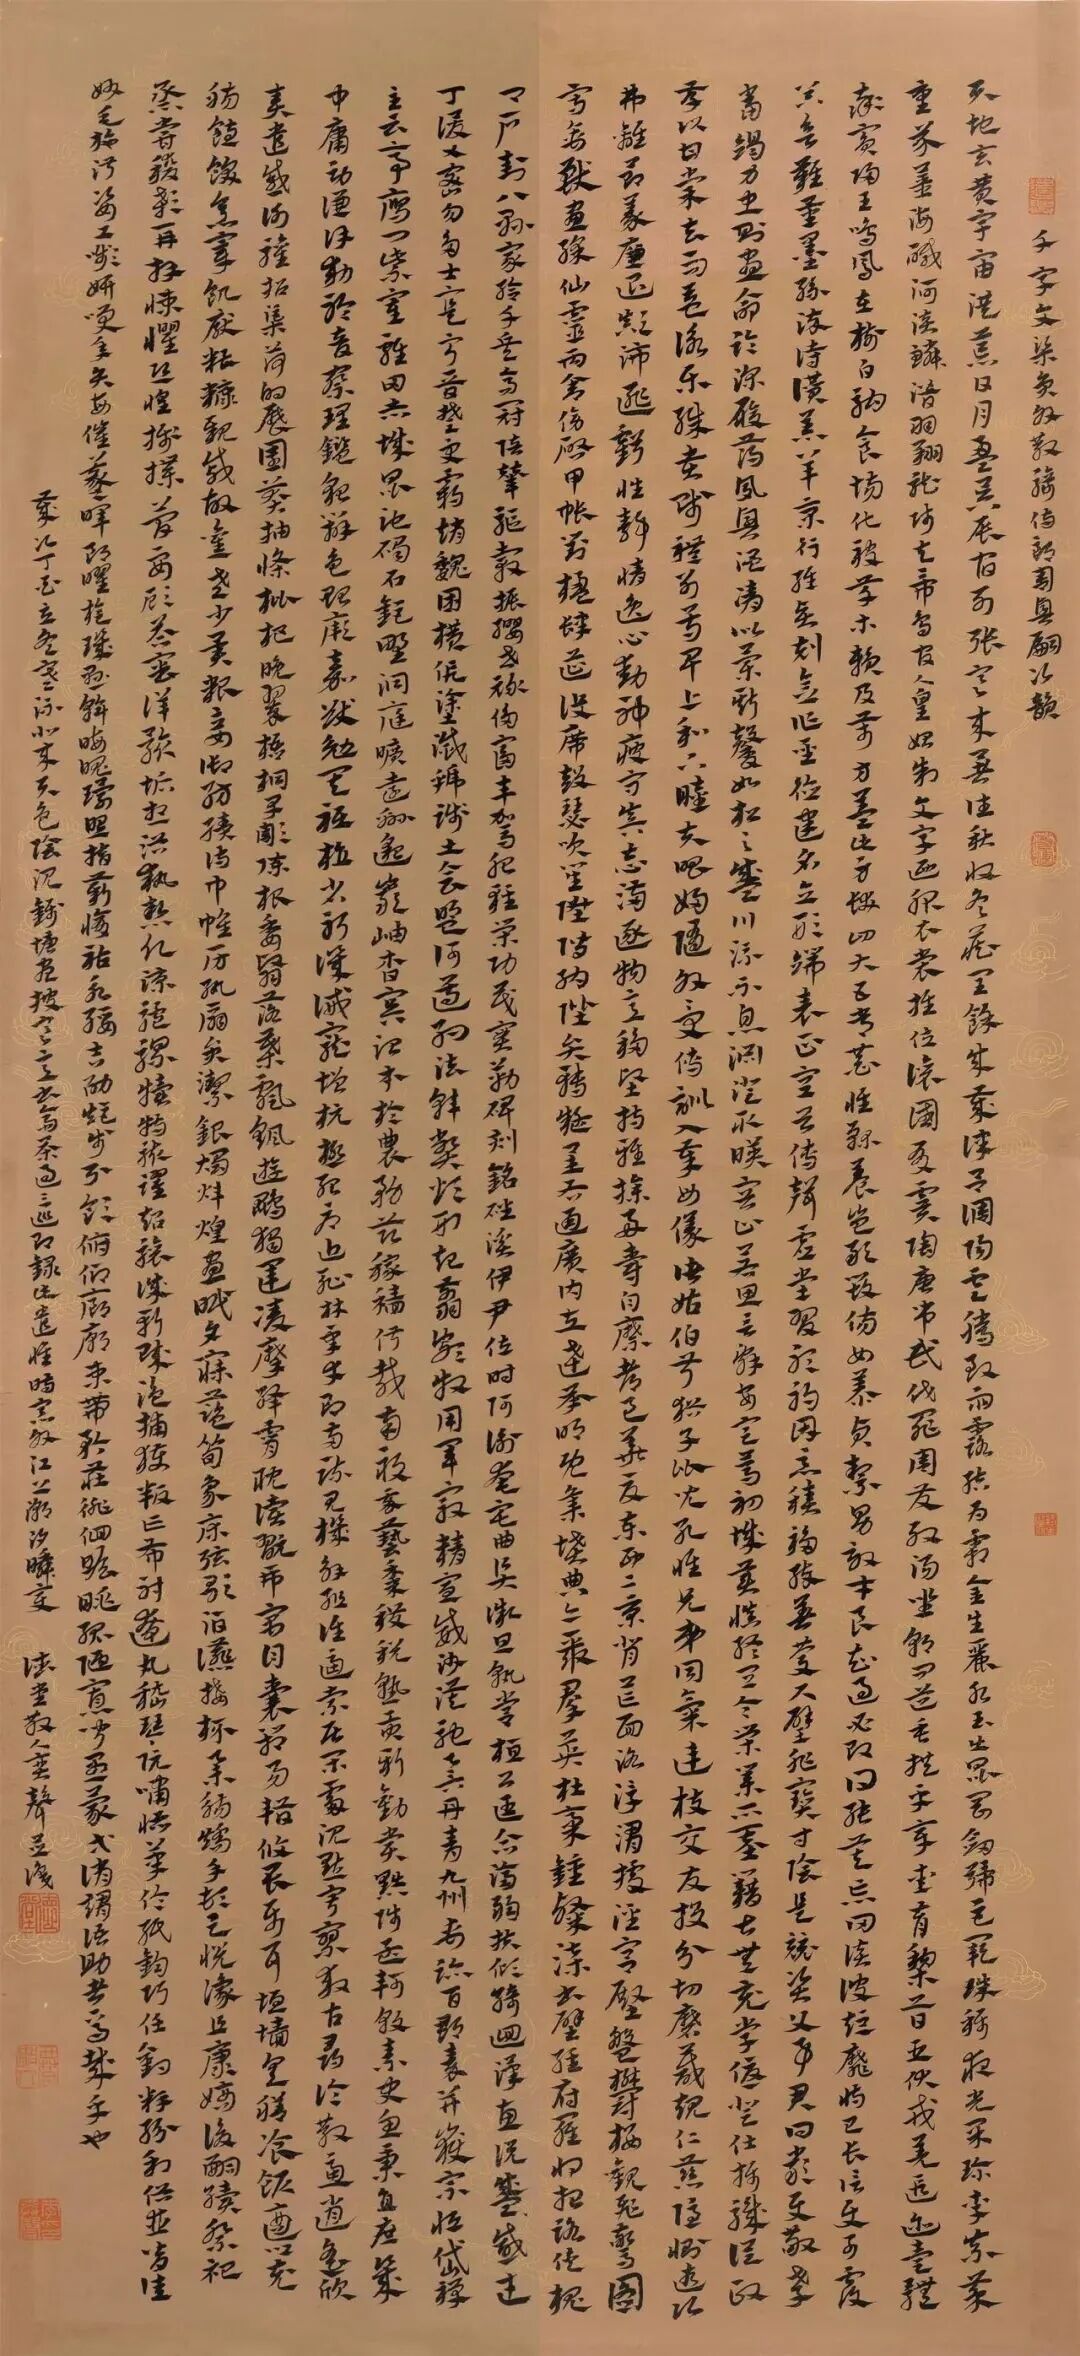 千字文梁員外散騎侍郎周興嗣次韻
天地玄黃宇宙洪荒日月盈昃辰宿列張寒來暑往秋收冬藏閏餘成歲律呂調陽雲騰致雨露結為霜金生麗水玉出崑岡劍號巨闕珠稱夜光果珍李柰菜
重芥薑海鹹河淡鱗潛羽翔龍師火帝鳥官人皇始制文字乃服衣裳推位讓國有虞陶唐弔民伐罪周發殷湯坐朝問道垂拱平章愛育黎首臣伏戎羌遐邇壹體
率賓歸王鳴鳳在樹白駒食場化被草木賴及萬方蓋此身髮四大五常恭惟鞠養豈敢毀傷女慕貞絜男效才良知過必改得能莫忘罔談彼短靡恃己長信使可覆
器欲難量墨悲絲染詩讚羔羊景行維賢剋念作聖德建名立形端表正空谷傳聲虛堂習聽禍因惡積福緣善慶尺璧非寶寸陰是競資父事君曰嚴與敬孝
當竭力忠則盡命臨深履薄夙興溫凊似蘭斯馨如松之盛川流不息淵澄取暎容止若思言辭安定篤初誠美慎終宜令榮業所基籍甚無竟學優登仕攝職從政
存以甘棠去而益詠樂殊貴賤禮別尊卑上和下睦夫唱婦隨外受傅訓入奉母儀諸姑伯叔猶子比兒孔懷兄弟同氣連枝交友投分切磨箴規仁慈隱惻造次
弗離節義廉退顛沛匪虧性靜情逸心動神疲守真志滿逐物意移堅持雅操好爵自縻都邑華夏東西二京背芒面洛浮渭據涇宮殿盤鬱樓觀飛驚圖
寫禽獸畫綵仙靈丙舍傍啓甲帳對楹肆筵設席鼓瑟吹笙陞階納陛弁轉疑星右通廣內左達承明既集墳典亦聚群英杜稾鍾隸漆書壁經府羅將相路俠槐
卿戶封八縣家給千兵高冠陪輦驅轂振纓世祿侈富車駕肥輕策功茂實勒碑刻銘磻溪伊尹佐時阿衡奄宅曲阜微旦孰營桓公匡合濟弱扶傾綺迴漢惠說感武
丁俊乂密勿多士寔寧晉楚更霸趙魏困橫假途滅虢踐土會盟何遵約法韓弊煩刑起翦頗牧用軍最精宣威沙漠馳譽丹青九州禹跡百郡秦并嶽宗恆岱禪
主云亭鴈門紫塞雞田赤城昆池碣石鉅野洞庭曠遠綿邈巖岫杳冥治本於農務茲稼穡俶載南畝我藝黍稷稅熟貢新勸賞黜陟孟軻敦素史魚秉直庶幾
中庸勞謙謹敕聆音察理鑑貌辨色貽厥嘉猷勉其祗植省躬譏誡寵增抗極殆辱近恥林皋幸即兩疏見機解組誰逼索居閑處沉默寂寥求古尋論散慮逍遙欣
奏累遣慼謝歡招渠荷的歷園莽抽條枇杷晚翠梧桐早彫陳根委翳落葉飄颻遊鵾獨運凌摩絳霄耽讀翫市寓目囊箱易輶攸畏屬耳垣墻具膳飡飯適口充
腸飽飫烹宰飢厭糟糠親戚故舊老少異糧妾御績紡侍巾帷房紈扇圓潔銀燭煒煌晝眠夕寐藍筍象床弦歌酒讌接杯舉觴矯手頓足悅豫且康嫡後嗣續祭祀
蒸嘗稽顙再拜悚懼恐惶牋牒簡要顧答審詳骸垢想浴執熱願涼驢騾犢特駭躍超驤誅斬賊盜捕獲叛亡布射遼丸嵇琴阮嘯恬筆倫紙鈞巧任釣釋紛利俗並皆佳
妙毛施淑姿工顰妍笑年矢每催曦暉朗曜旋璣懸斡晦魄環照指薪修祜永綏吉劭矩步引領俯仰廊廟束帶矜莊徘徊瞻眺孤陋寡聞愚蒙等誚謂語助者焉哉乎也
歲次丁酉立冬寒流北來天色陰沉錢塘江上潮汐瞬變